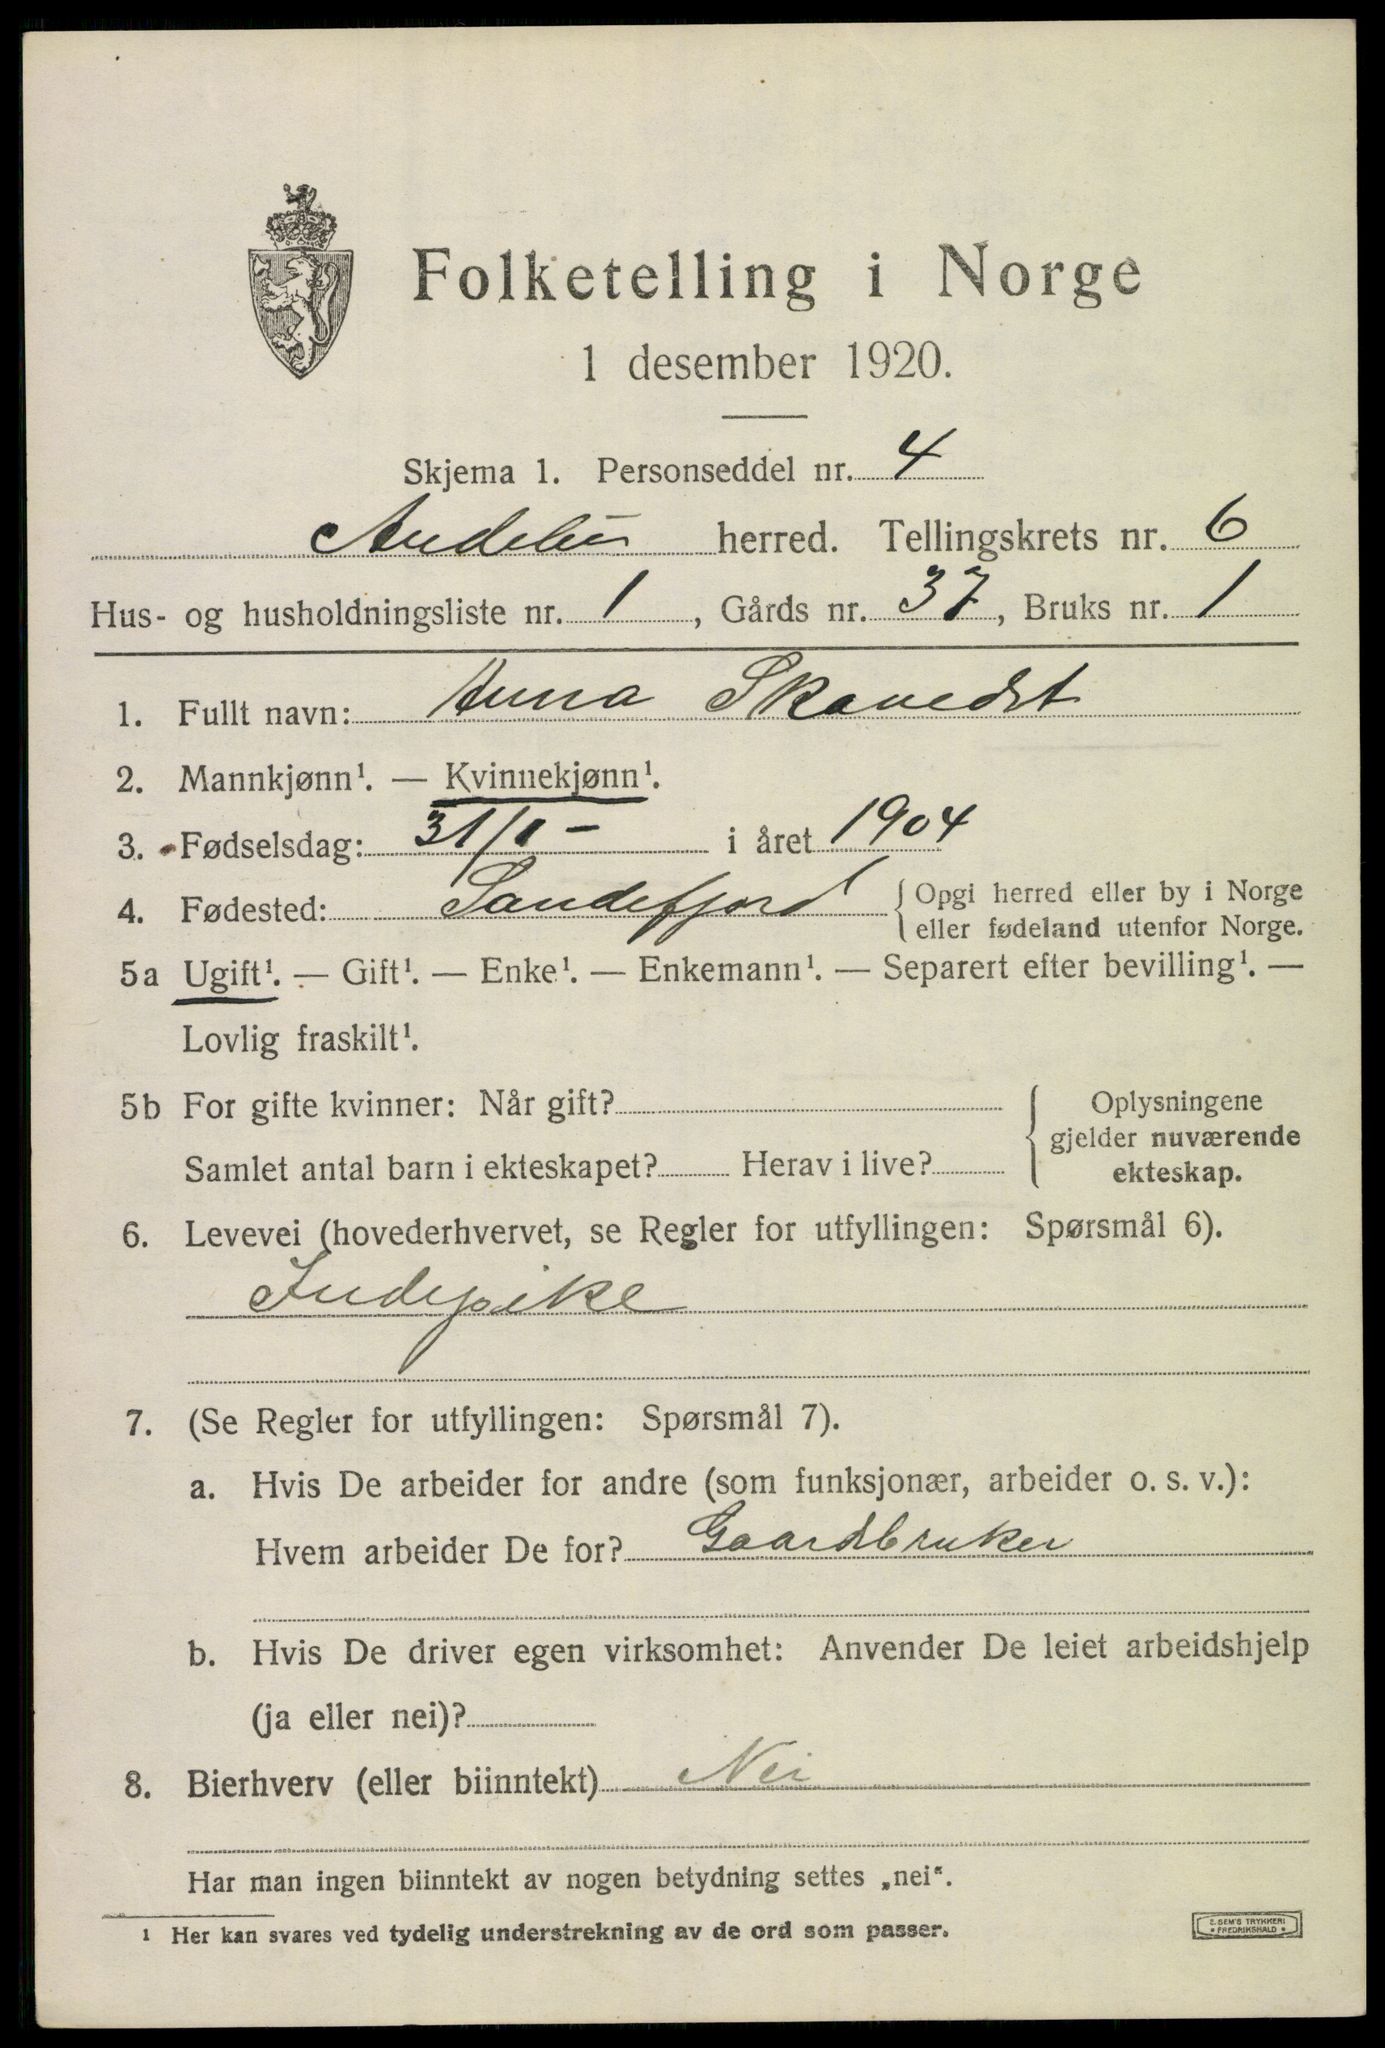 Folketelling i Norge
1 desember 1920.
Skjema 1. Personseddel nr. 4
Andebu herred. Tellingskrets nr. 6
Hus- og husholdningsliste nr. 1, Gårds nr. 37, Bruks nr. 1
1. Fullt navn: Anna
2. Mannkjønn¹. — Kvinnekjønn¹.
3. Fødselsdag: 31/1 - i året 1904
4. Fødested: Sandefjord { Opgi herred eller by i Norge
eller fødeland utenfor Norge.
5a Ugift¹. — Gift¹. — Enke¹. — Enkemann¹. — Separert efter bevilling¹. —
Lovlig fraskilt¹.
5b For gifte kvinner: Når gift?
Samlet antal barn i ekteskapet? Herav i live?
{ Oplysningene
gjelder nuværende
ekteskap.
6. Levevei (hovederhvervet, se Regler for utfyllingen: Spørsmål 6).
Indepike
7. (Se Regler for utfyllingen: Spørsmål 7).
a. Hvis De arbeider for andre (som funksjonær, arbeider o. s. v.):
Hvem arbeider De for? Gaardbruker
b. Hvis De driver egen virksomhet: Anvender De leiet arbeidshjelp
(ja eller nei)?
8. Bierhverv (eller biinntekt) Nei
Har man ingen biinntekt av nogen betydning settes „nei“.
¹ Her kan svares ved tydelig understrekning av de ord som passer.
E. SEM'S TRYKKERI
* FREDRIKSHALD *